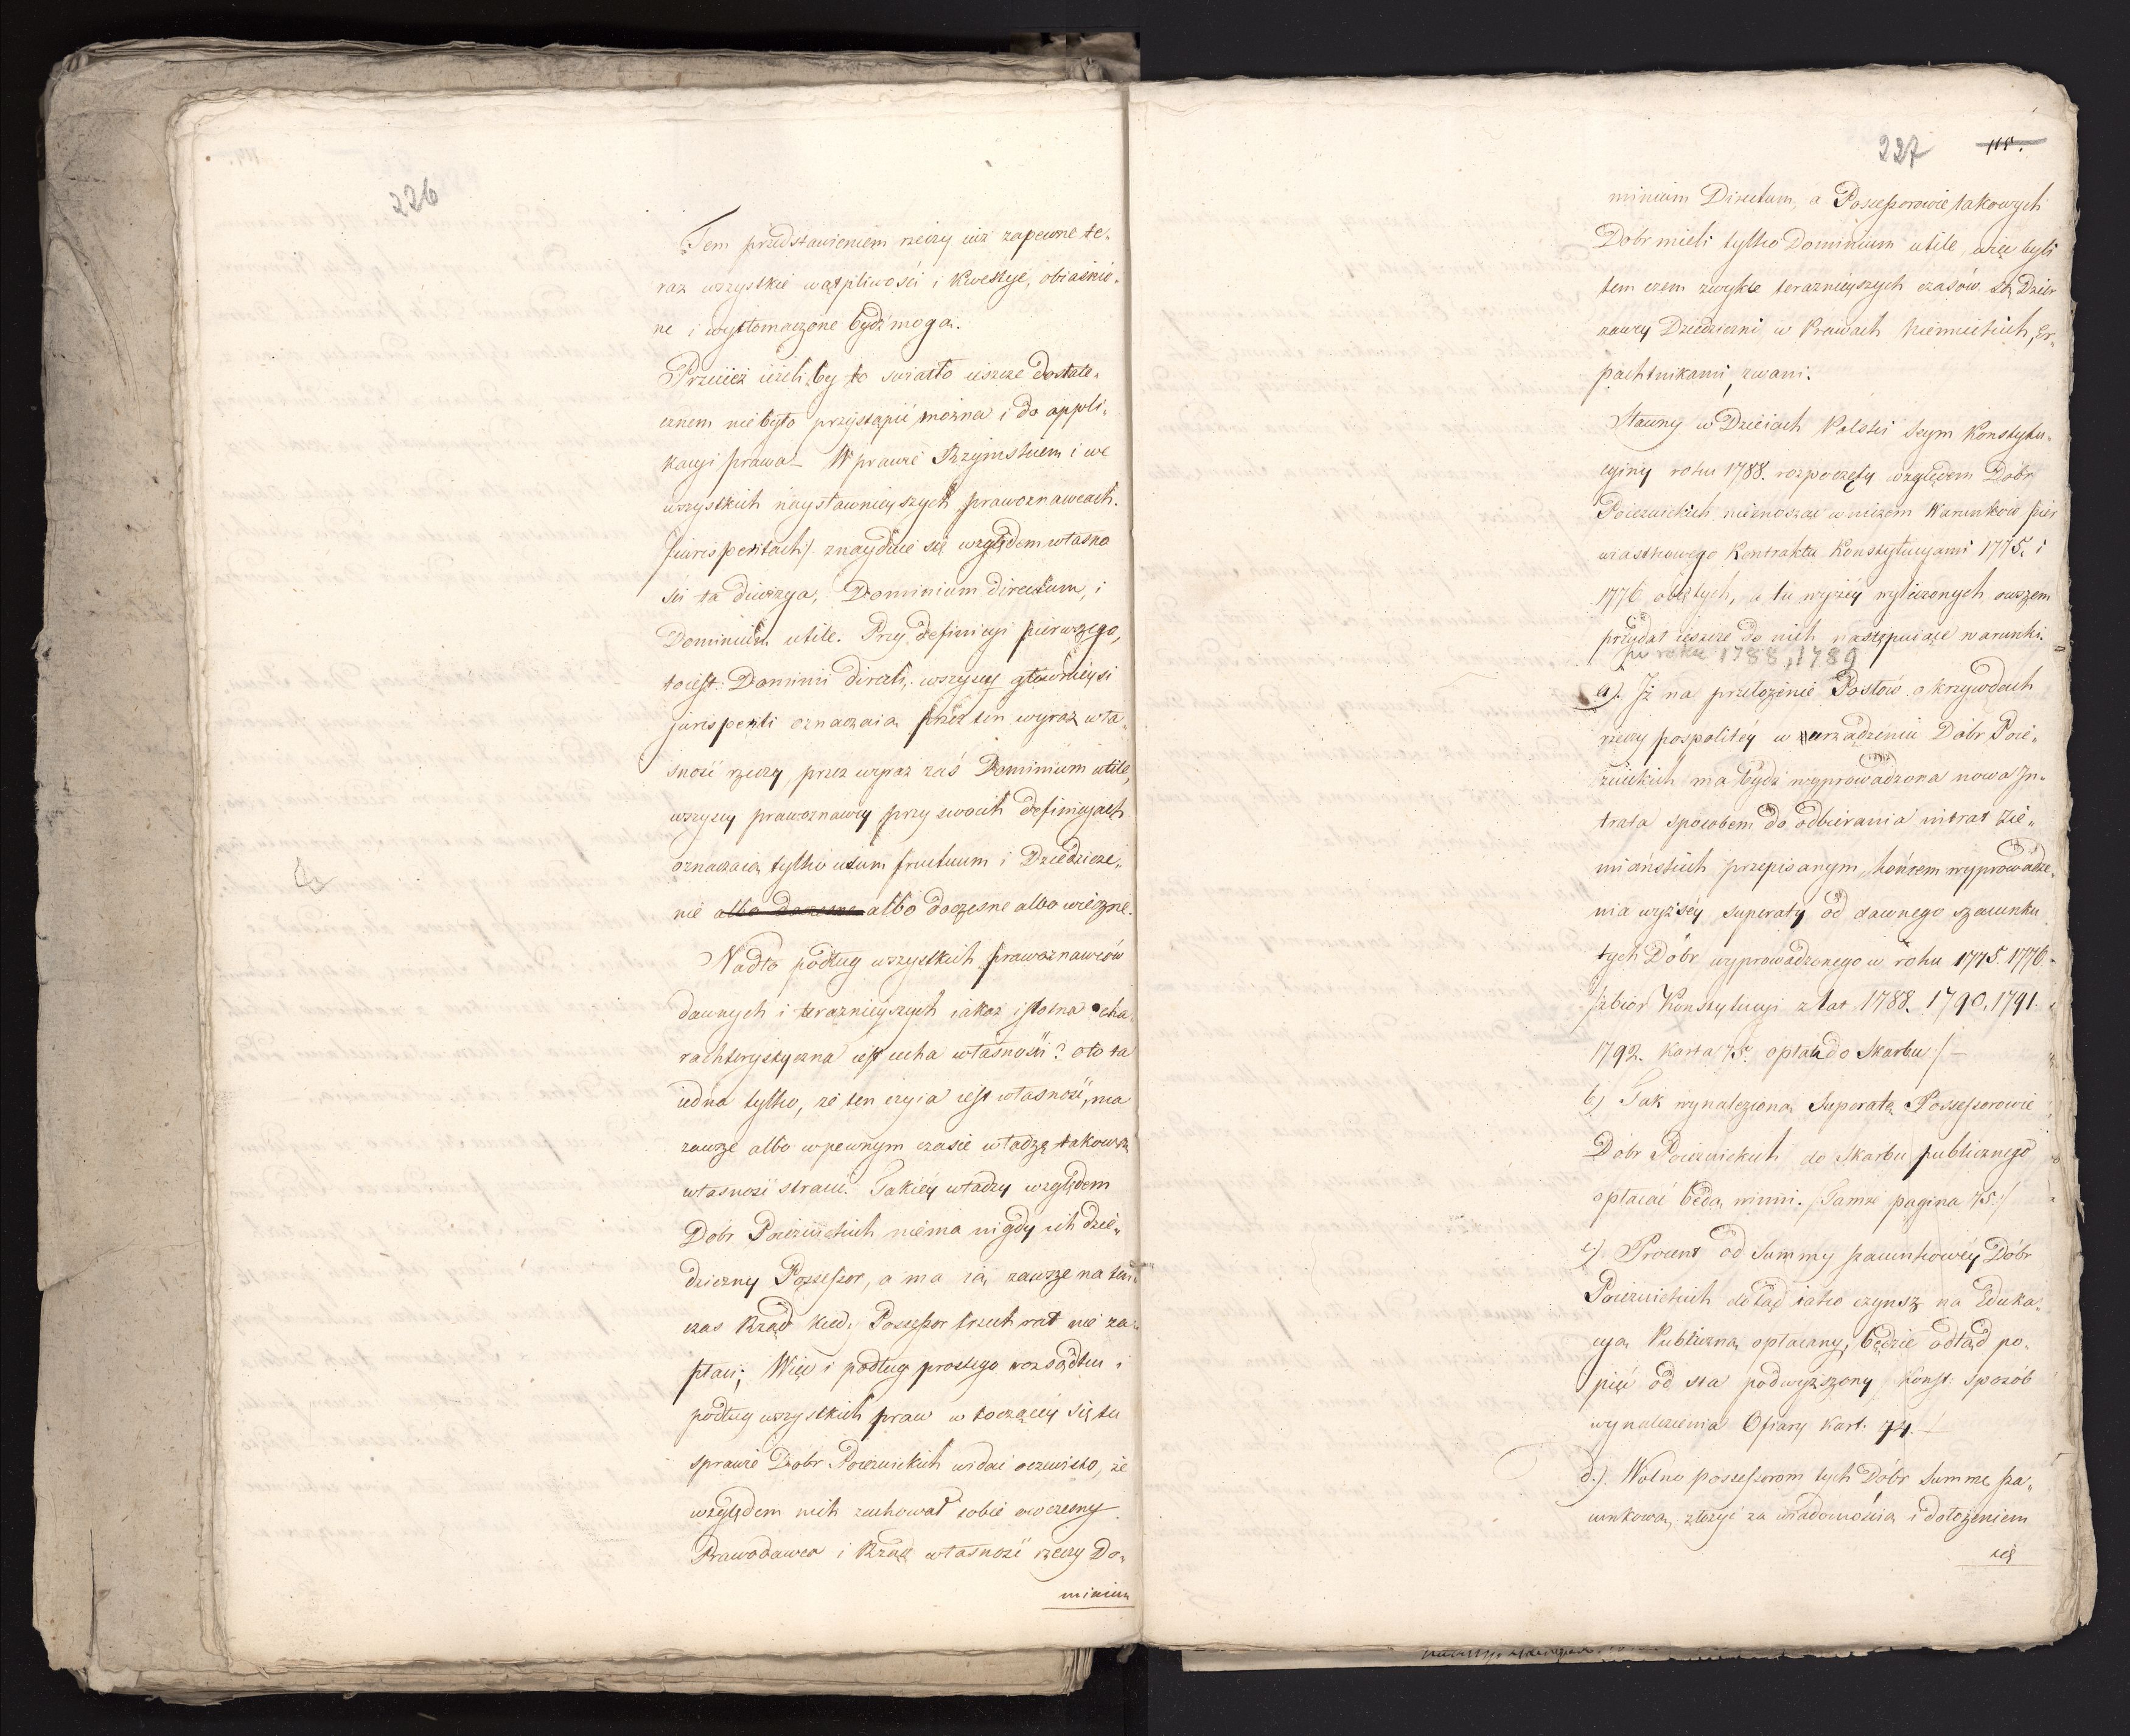 226
Tem przedstawieniem rzeczy iuż zapewne te„
raz wszystkie wątpliwości i kwestye, obiaśnio„
ne i wytłomaczone bydź mogą.
Przecież ieżeli by to swiatło ieszcze dostate„
cznem nie było przystąpić można i do appli„
kacyi prawa – W prawie Rzymskiem i we
wszystkich naysławnieyszych prawoznawcach.
/:jurisperitach:/ znayduie się względem własno
ści ta diwizya, Dominium directum, i
Dominium utile. Przy definicyi pierwszego,
to iest: Dominii directi, wszyscy głównieysi
jurisperiti oznaczaią przez ten wyraz wła„
sność rzeczy, przez wyraz zaś Dominium utile,
wszyscy prawoznawcy przy swoich definicyach
oznaczaią tylko usum fructuum i Dziedzicze„
nie albo doczesne albo doczesne albo wieczne.
Nadto podług wszystkich prawoznawców
dawnych i teraznieyszych iakaż istotna cha„
rakterystyczna iest cecha własności? oto ta
iedna tylko, że ten czyia iest własność, ma
zawsze albo w pewnym czasie władzę takową
własność stracić. Takiéy władzy względem
Dobr Poiezuickich niema nigdy ich dzie„
dziczny Possessor, a ma ią zawsze na ten„
czas Rząd kied: Possessor trzech rat nie za„
płaci; Więc i podług prostego rozsądku i
podług wszystkich praw w toczącéy się tu
sprawie Dobr Poiezuickich widać oczewisto, że
względem nich zachował sobie owczesny
Prawodawca i Rząd własność rzeczy Do„
minium
227 115.
minium Directum, a Possessorowie takowych
Dobr mieli tylko Dominium utile, więc byli
tem czem zwykle teraznieyszych czasów są Dzier
zawcy Dziedziczni w Prawach Niemieckich, Er„
pachtnikami, zwani.
Sławny w Dzieiach Polski Seym Konstytu„
cyiny roku 1788. rozpoczęty względem Dobr
Poiezuickich nieznosząc w niczem Warunków pier
wiastkowego Kontraktu Konstytucyami 1775. i
1776 obiętych, a tu wyżéy wyliczonych owszem
przydał ieszcze do nich następuiące warunki.
w roku 1788, 1789
a). Iż na przełożenie Posłów o krzywdach
rzeczy pospolitéy w urządzeniu Dobr Poie„
zuickich ma bydź wyprowadzona nowa In„
trata sposobem do odbierania intrat Zie„
miańskich przepisanym, końcem wyprowadze„
nia wyższéy superaty od dawnego szacunku
tych Dóbr wyprowadzonego w roku 1775. 1776.
/zbiór Konstytucyi z lat 1788. 1790. 1791.
1792. Karta 75. opłata do Skarbu / –
b) Tak wynalezioną Superatę Possessorowie
Dobr Poiezuickich do Skarbu publicznego
opłacać będą winni. /Tamże pagina 75:/
c). Procent od Summy szacunkowéy Dóbr
Poiezuickich dotąd iako czynsz na Eduka„
cyą Publiczną opłacany, będzie odtąd po„
pięć od sta podwyższony /Konst: sposób
wynalezienia Ofiary kart. 74. /
d.). Wolno possessorom tych Dóbr Summę sza„
cunkową, złożyć za wiadomością i dołożeniem
się